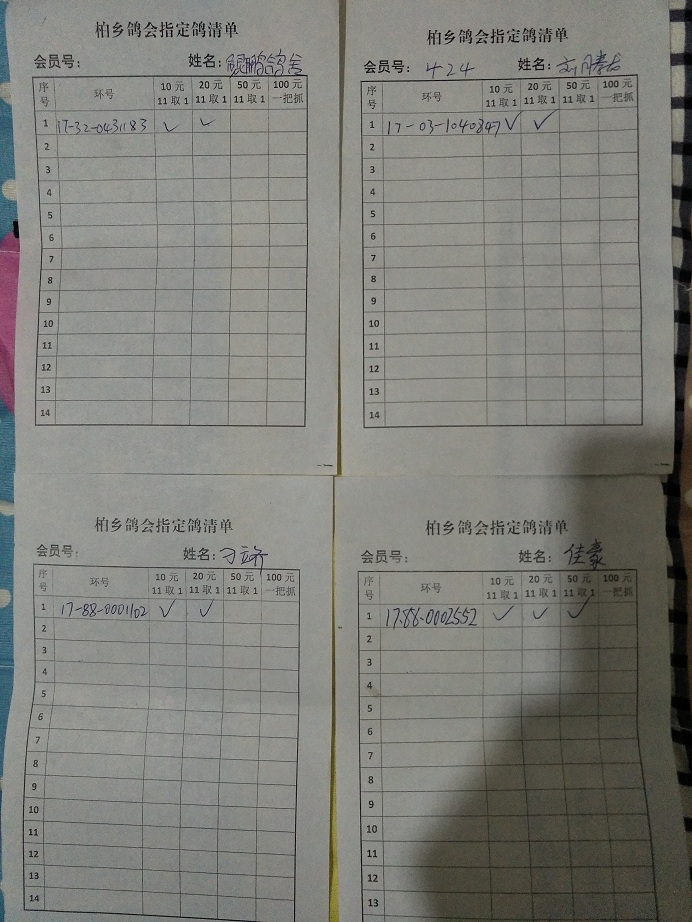 柏乡鸽会指定鸽清单
会员号： 姓名：鹏鸽舍
序号 环号 10 元 11 取 1 20 元 11 取 1 50 元 11 取 1 100 元 一把抓
1 17-32-0431183 ✓ ✓
2
3
4
5
6
7
8
9
10
11
12
13
14
柏乡鸽会指定鸽清单
会员号： 424 姓名：刘
序号 环号 10 元 11 取 1 20 元 11 取 1 50 元 11 取 1 100 元 一把抓
1 17-03-1040847 ✓ ✓
2
3
4
5
6
7
8
9
10
11
12
13
14
柏乡鸽会指定鸽清单
会员号： 姓名：
序号 环号 10 元 11 取 1 20 元 11 取 1 50 元 11 取 1 100 元 一把抓
1 17-88-0001102 ✓ ✓
2
3
4
5
6
7
8
9
10
11
12
13
14
柏乡鸽会指定鸽清单
会员号： 姓名：佳豪
序号 环号 10 元 11 取 1 20 元 11 取 1 50 元 11 取 1 100 元 一把抓
1 17-88-0002552 ✓ ✓ ✓
2
3
4
5
6
7
8
9
10
11
12
13